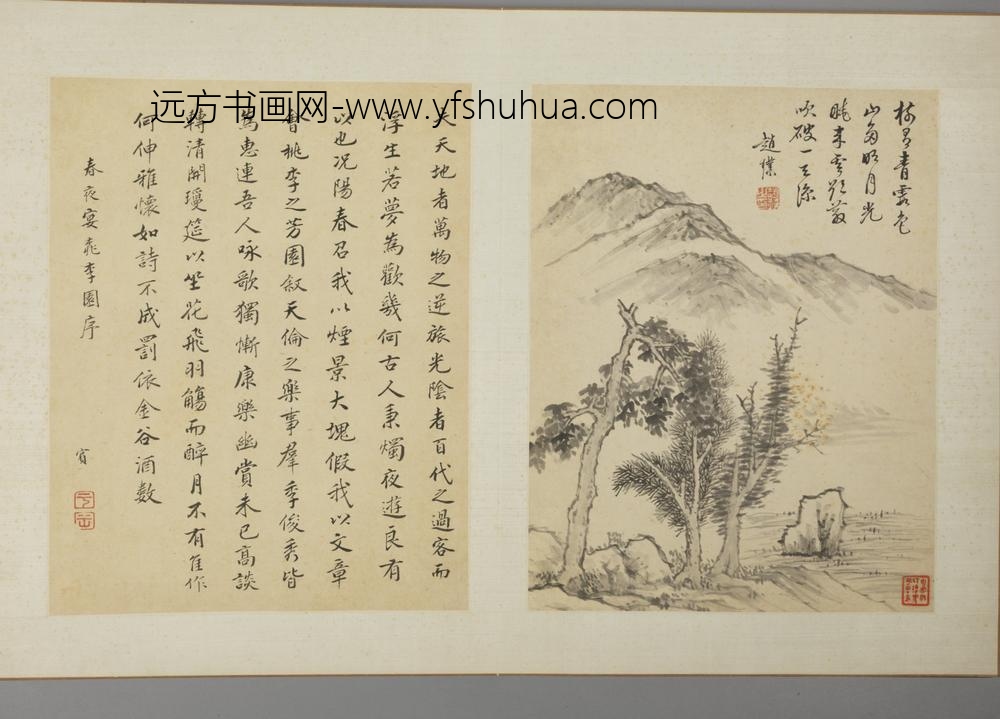 远方书画网-www.yfshuhua.com
青靄色
山多明月光
破一天涼
趙
夫天地者萬物之逆旅光陰者百代之過客而
浮生若夢為歡幾何古人秉燭夜遊良有
以也况陽春召我以煙景大塊假我以文章
會桃李之芳園叙天倫之樂事羣季俊秀皆
為惠連吾人咏歌獨慚康樂幽賞未已高談
轉清開瓊筵以坐花飛羽觴而醉月不有佳作
何伸雅懷如詩不成罰依金谷酒數
春夜宴桃李園序